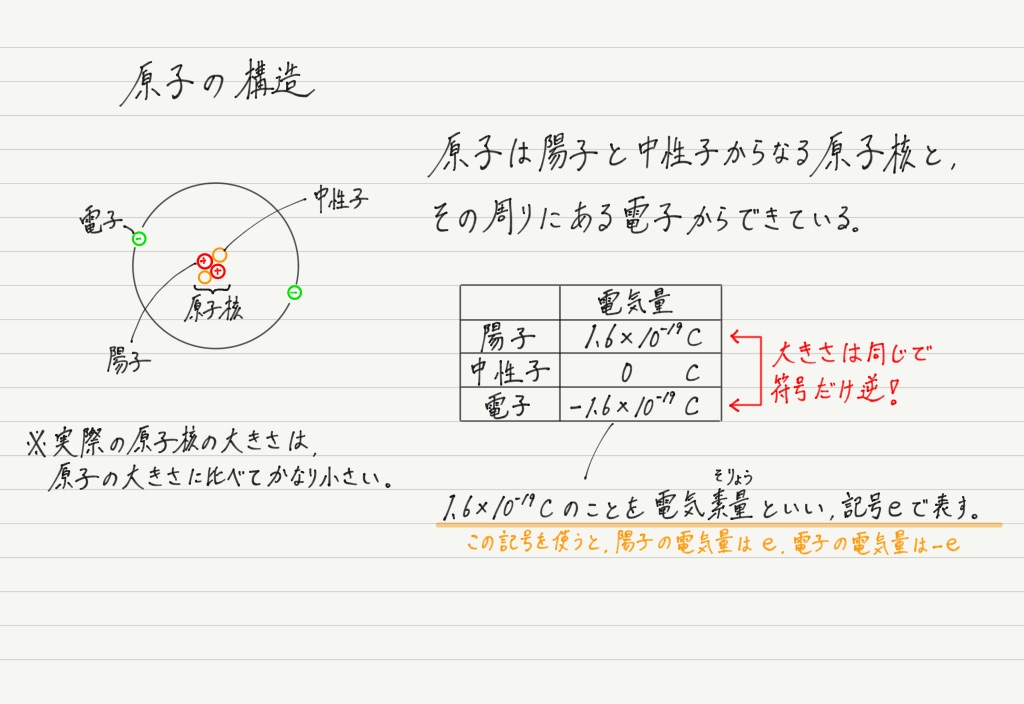 原子の構造
原子は陽子と中性子からなる原子核と,
その周りにある電子からできている。
中性子
電子
原子核
陽子
※実際の原子核の大きさは,
原子の大きさに比べてかなり小さい。
電気量
陽子 1.6×10⁻¹⁹ C
中性子 0 C
電子 -1.6×10⁻¹⁹ C
大きさは同じで
符号だけ逆!
そりょう
1.6×10⁻¹⁹Cのことを電気素量といい,記号eで表す。
この記号を使うと,陽子の電気量はe,電子の電気量は-e